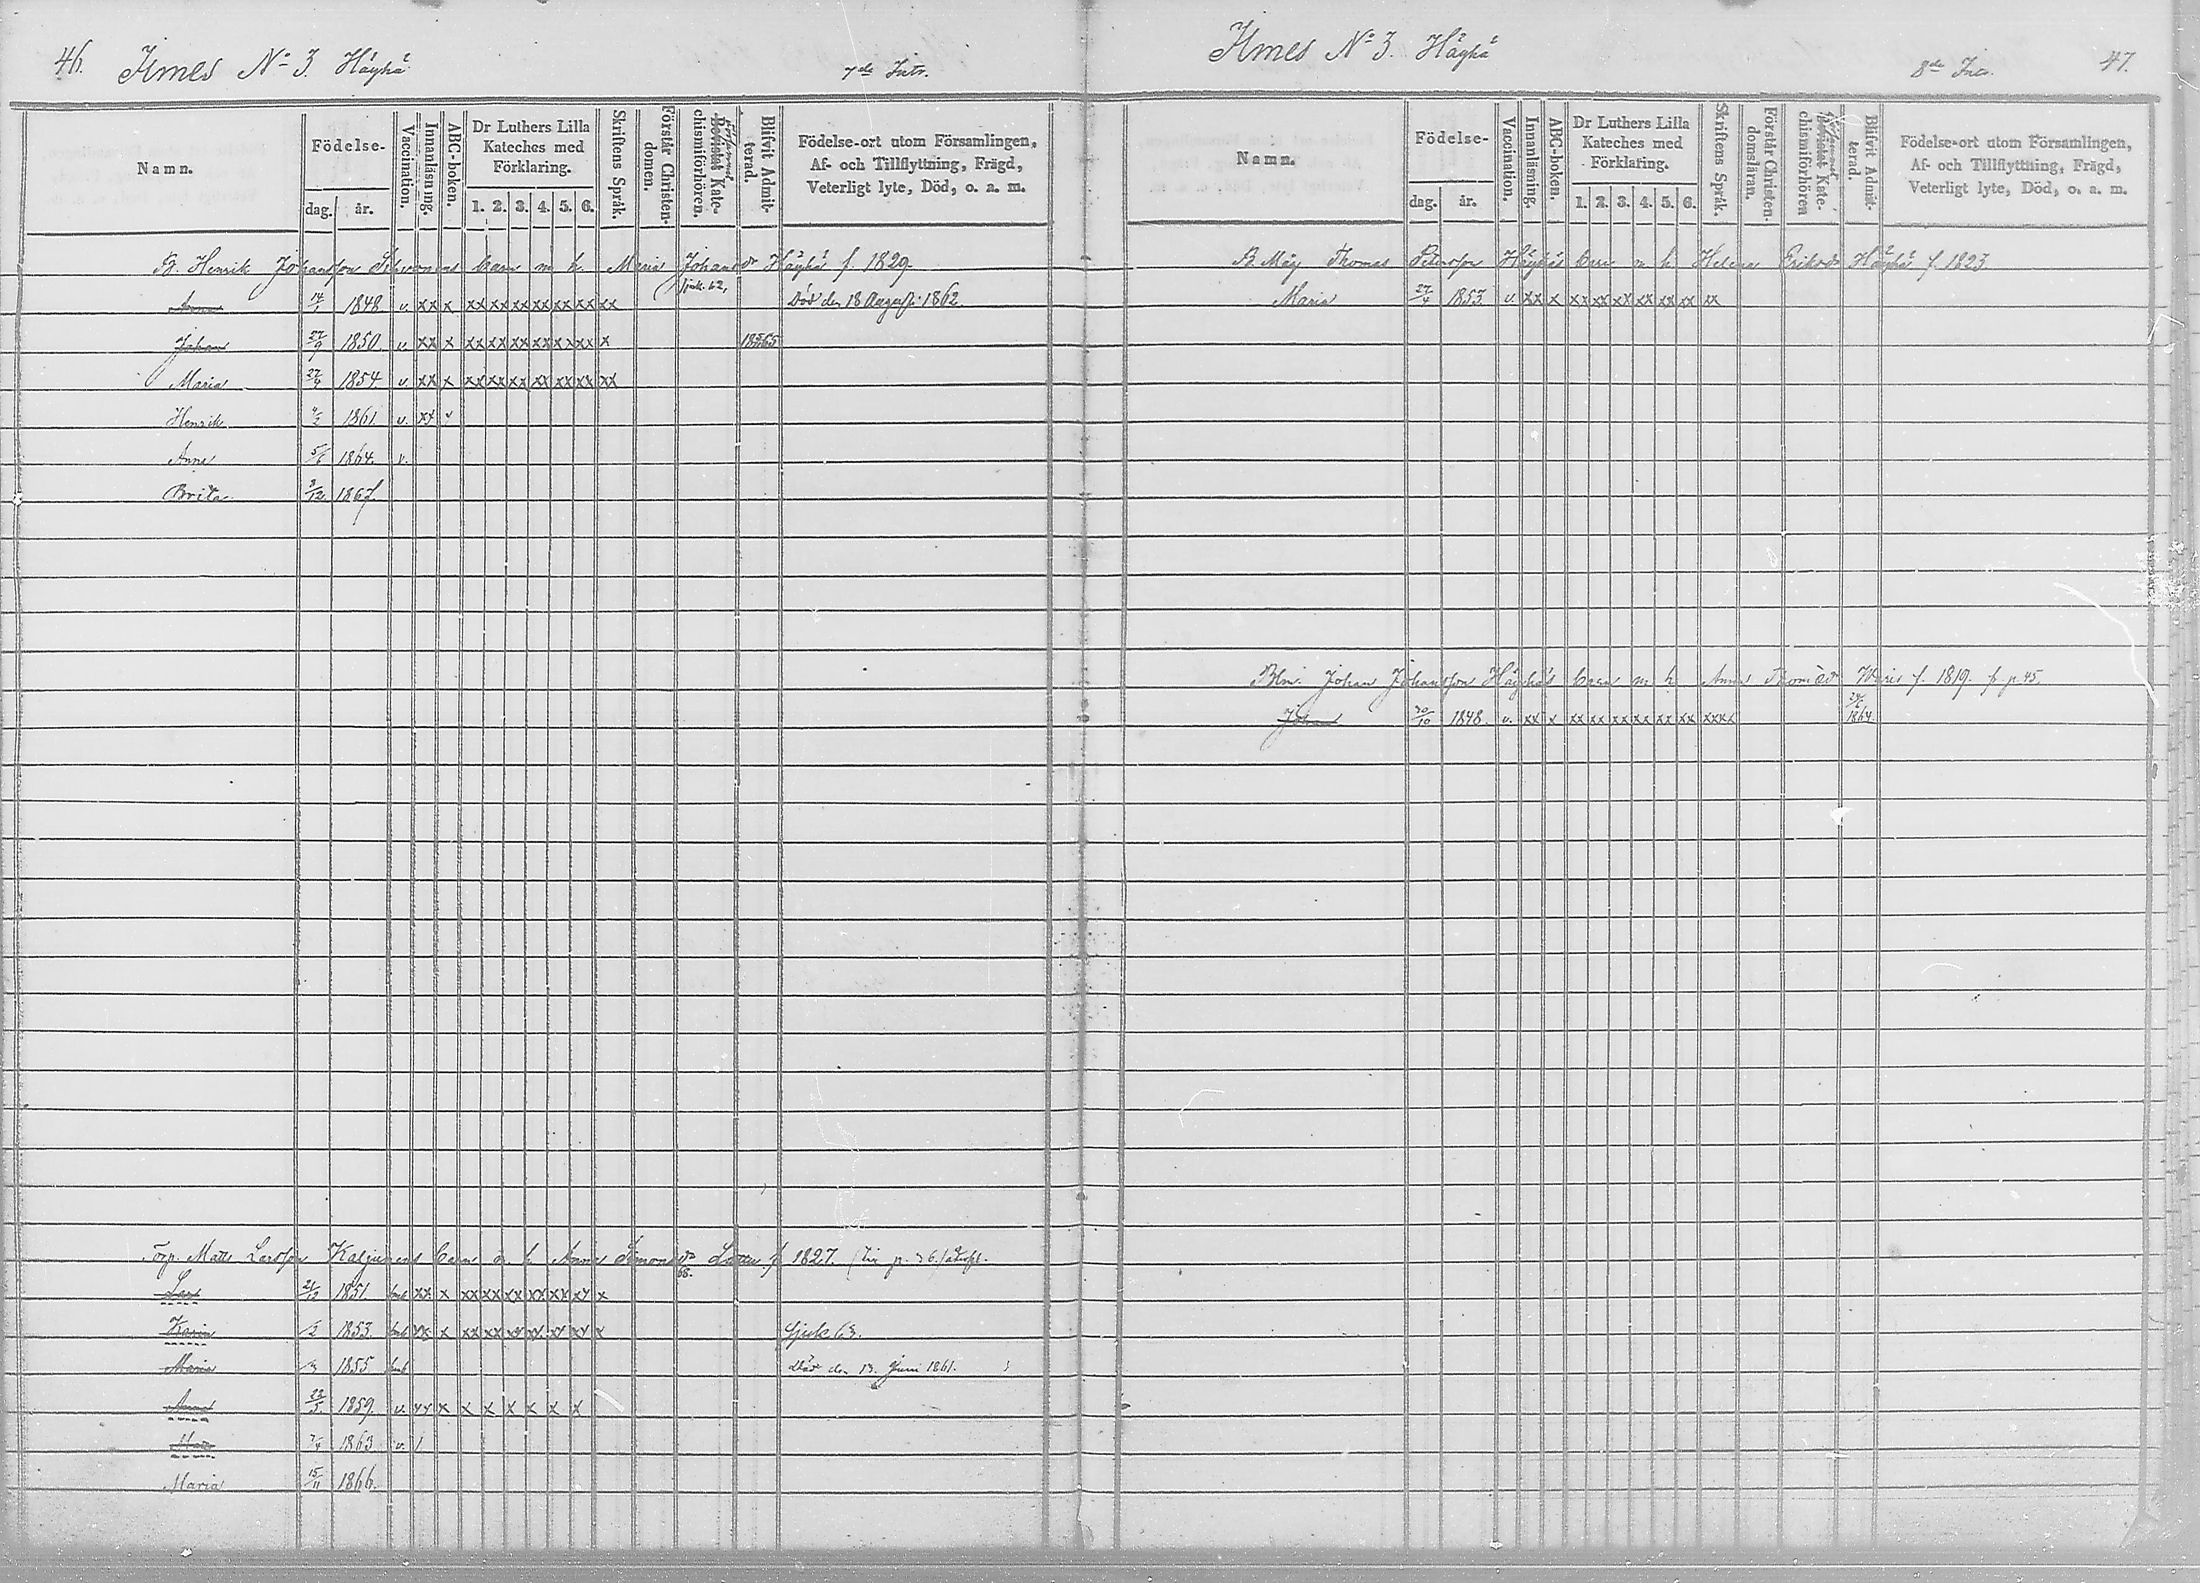 46. Ilmes No 3. Häyhä 7de Intr.
Namn.
Födelse-
dag. år.
Vaccination.
Innanläsning.
ABC-boken.
Dr Luthers Lilla Kateches med Förklaring.
1. 2. 3. 4. 5. 6.
Skriftens Språk.
Förstår Christendomen.
Bevistat Katechismiförhören.
Blifvit Admitterad.
Födelse-ort utom Församlingen, Af- och Tillflyttning, Frägd, Veterligt lyte, Död, o. a. m.
B. Henrik Johansson barn m. h. Maria Johansdr Häyhä f. 1829
sjuk 62,
Anna 14/1 1848. v. xx x xx xx xx xx xx xx xx Död den 18 Augusti 1862
Johan 27/9 1850. v. xx x xx xx xx xx xx xx x 1865
Maria 27/4 1854 v. xx x xx xx xx xx xx xx xx
Henrik 4/2 1861. v. xx v
Anna 5/6 1864. v.
Brita 3/12 1867.
Torp. Matts Larsson Kaljunens barn m. h. Anna Simonsdr f. 1827.
68.
Lars 21/12 1851. xx x xx xx xx xx xx xx x
Karin 1853. xx x xx xx xx xx xx xx x Sjuk 63.
Maria 1855 Död den 13. Juni 1861.
Anna 22/3 1859. v. xx x x x x x x x
Matts 7/4 1863 v. /
Maria 15/11 1866.
Ilmes No 3. Häyhä 8de Intr. 47.
Namn.
Födelse-
dag. år.
Vaccination.
Innanläsning.
ABC-boken.
Dr Luthers Lilla Kateches med Förklaring.
1. 2. 3. 4. 5. 6.
Skriftens Språk.
Förstår Christendomsläran.
Bevistat Katechismiförhören
Blifvit Admitterad.
Födelse-ort utom Församlingen, Af- och Tillflyttning, Frägd, Veterligt lyte, Död, o. a. m.
B. Måg Thomas Petersson Häyhäs barn m h Helena Eriksdr Häyhä f. 1823
Maria 27/4 1853. v. xx x xx xx xx xx xx xx xx
Johan Johansson Häyhäs barn m h Anna Thomædr f. 1819. p. 45.
24/6
Johan 30/10 1848. v. xx x xx xx xx xx xx xx xxxx 1864.